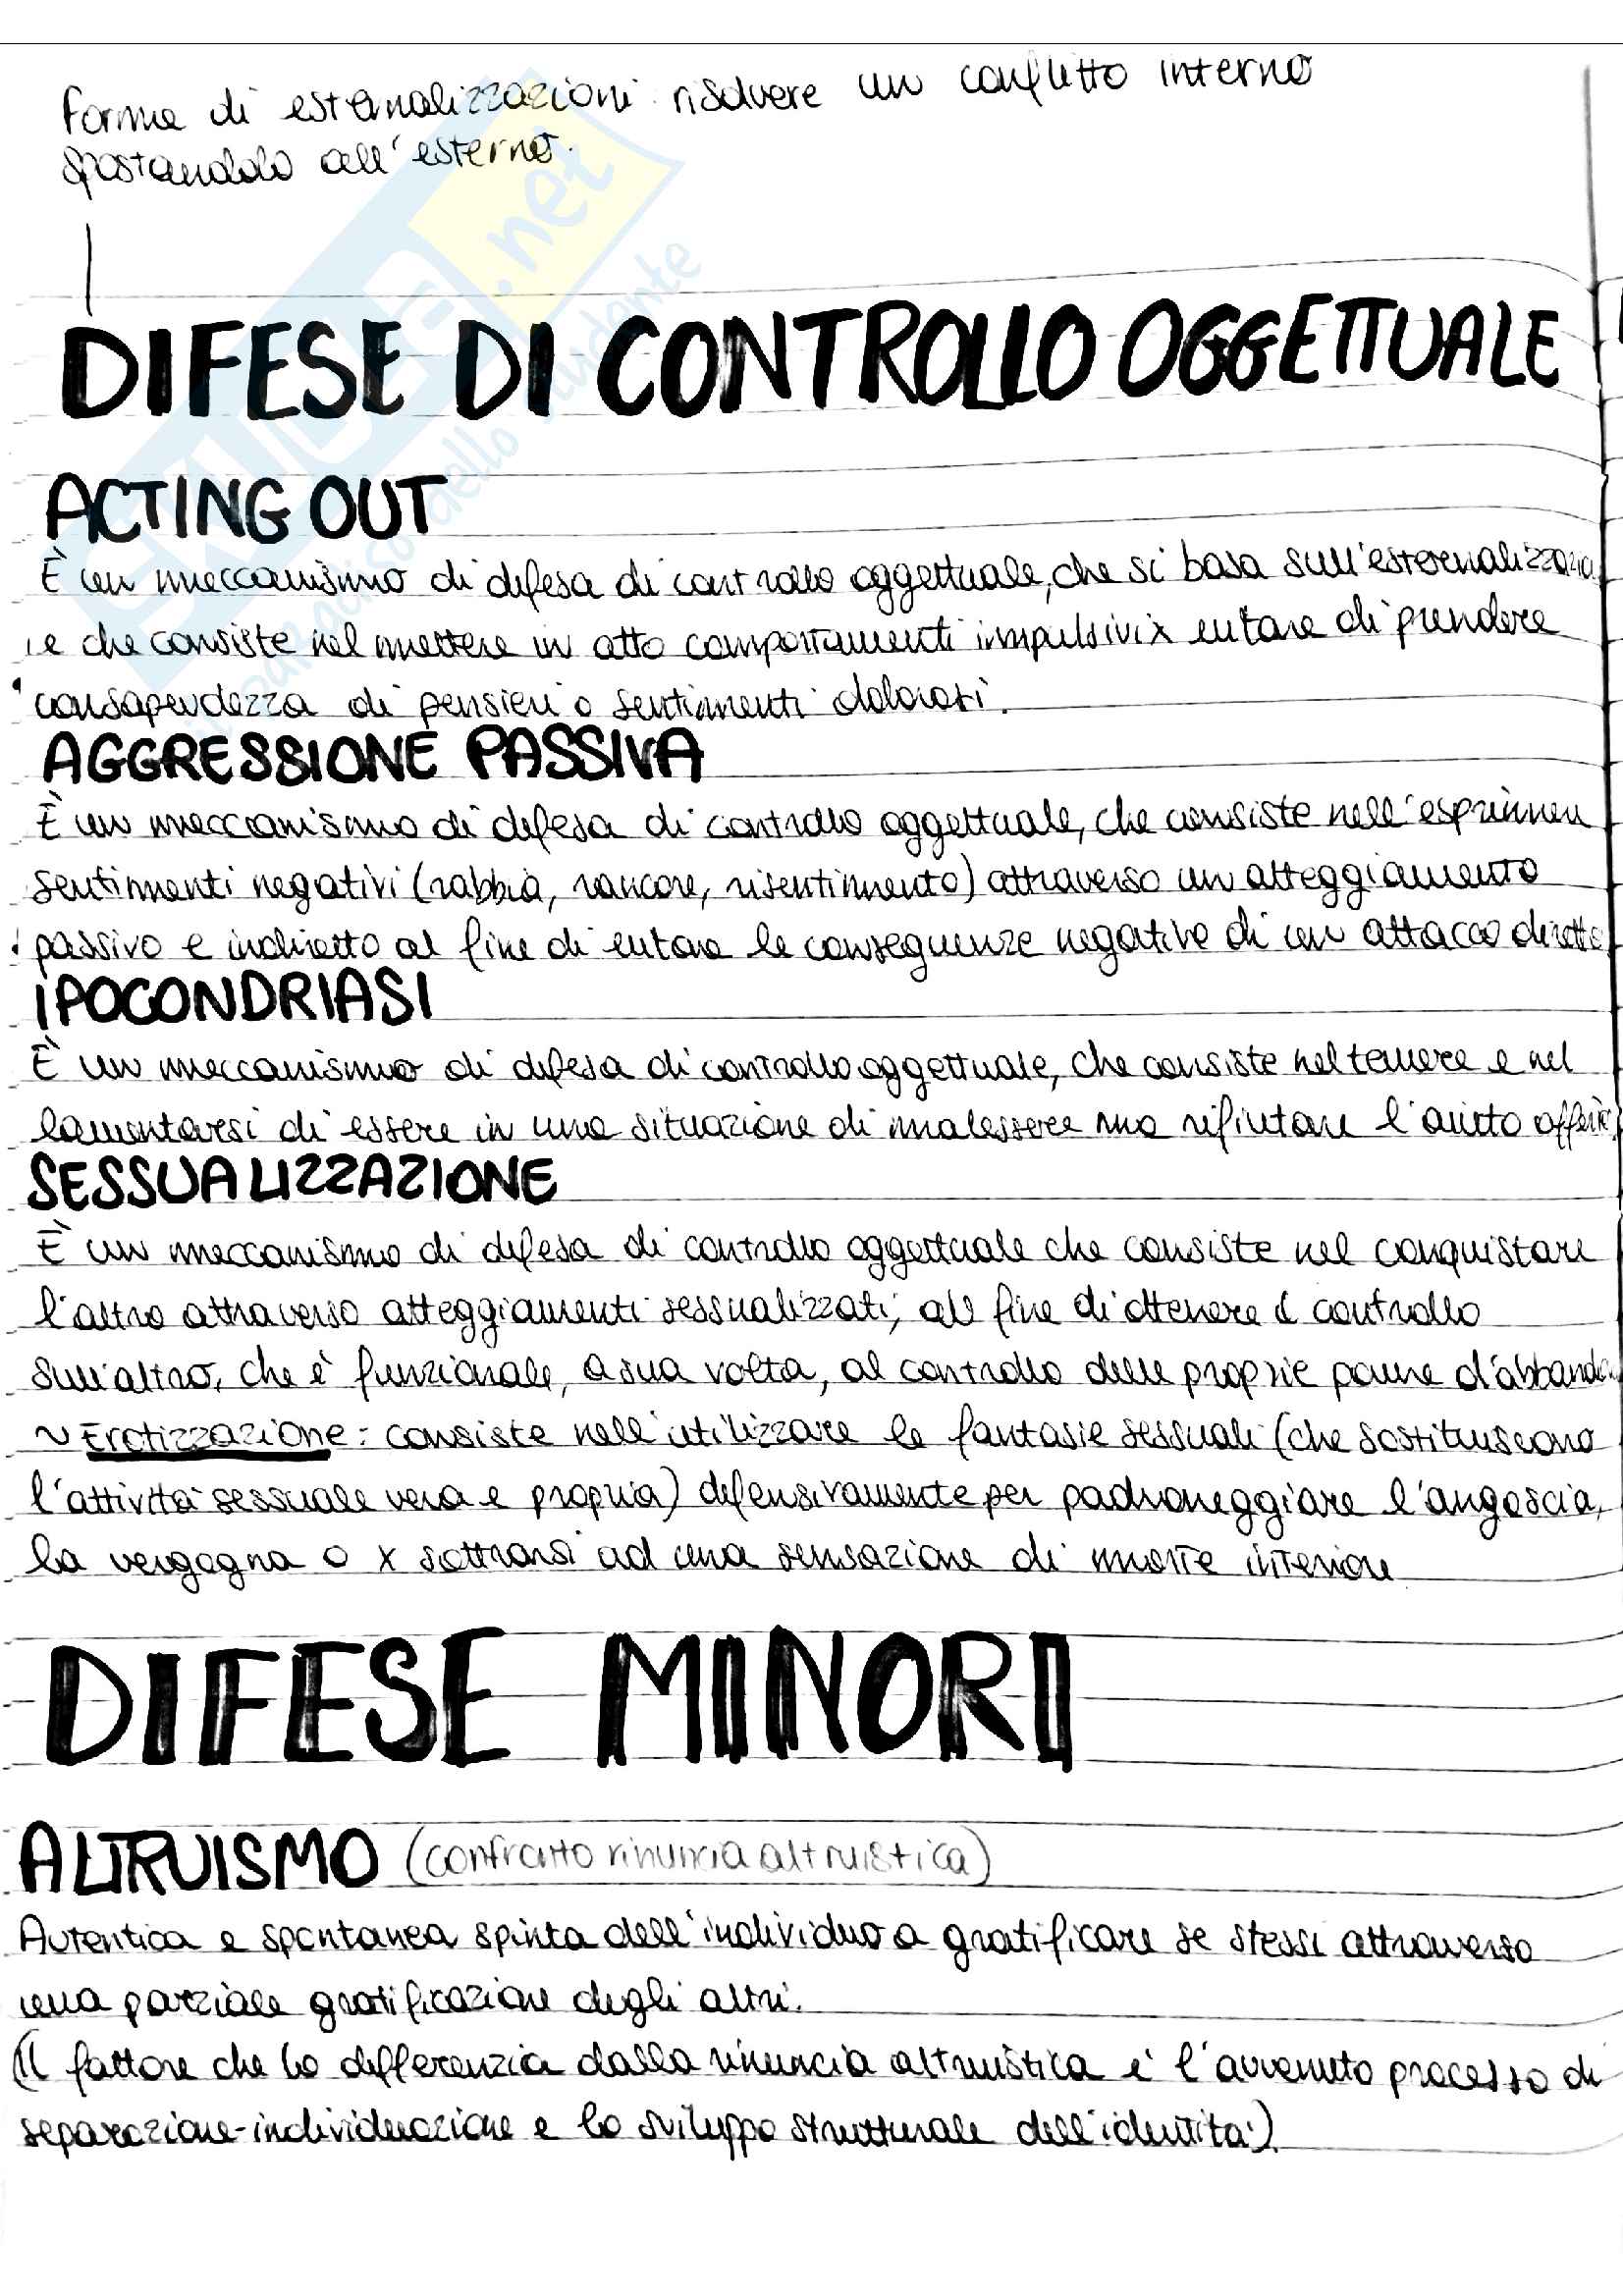 Forme di esternalizzazioni: risolvere un conflitto interno
spostandolo all'esterno.
DIFESE DI CONTROLLO OGGETTUALE
ACTING OUT
È un meccanismo di difesa di controllo oggettuale, che si basa sull'esternalizzazio
ne che consiste nel mettere in atto comportamenti impulsivi x evitare di prendere
consapevolezza di pensieri o sentimenti dolorosi.
AGGRESSIONE PASSIVA
È un meccanismo di difesa di controllo oggettuale, che consiste nell'esprimere
sentimenti negativi (rabbia, rancore, risentimento) attraverso un atteggiamento
passivo e indiretto al fine di evitare le conseguenze negative di un attacco diretto
IPOCONDRIASI
È un meccanismo di difesa di controllo oggettuale, che consiste nel temere e nel
lamentarsi di essere in una situazione di malessere ma rifiutare l'aiuto offerto
SESSUALIZZAZIONE
È un meccanismo di difesa di controllo oggettuale che consiste nel conquistare
l'altro attraverso atteggiamenti sessualizzati, al fine di ottenere il controllo
sull'altro, che è funzionale, a sua volta, al controllo delle proprie paure d'abbando
~ Erotizzazione: consiste nell'utilizzare le fantasie sessuali (che sostituiscono
l'attività sessuale vera e propria) difensivamente per padroneggiare l'angoscia,
la vergogna o x sottrarsi ad una sensazione di morte interiore
DIFESE MINORI
ALTRUISMO (confronto rinuncia altruistica)
Autentica e spontanea spinta dell'individuo a gratificare se stessi attraverso
una parziale gratificazione degli altri.
(Il fattore che lo differenzia dalla rinuncia altruistica è l'avvenuto processo di
separazione-individuazione e lo sviluppo strutturale dell'identità).
SKUOLA.net
paradiso dello studente